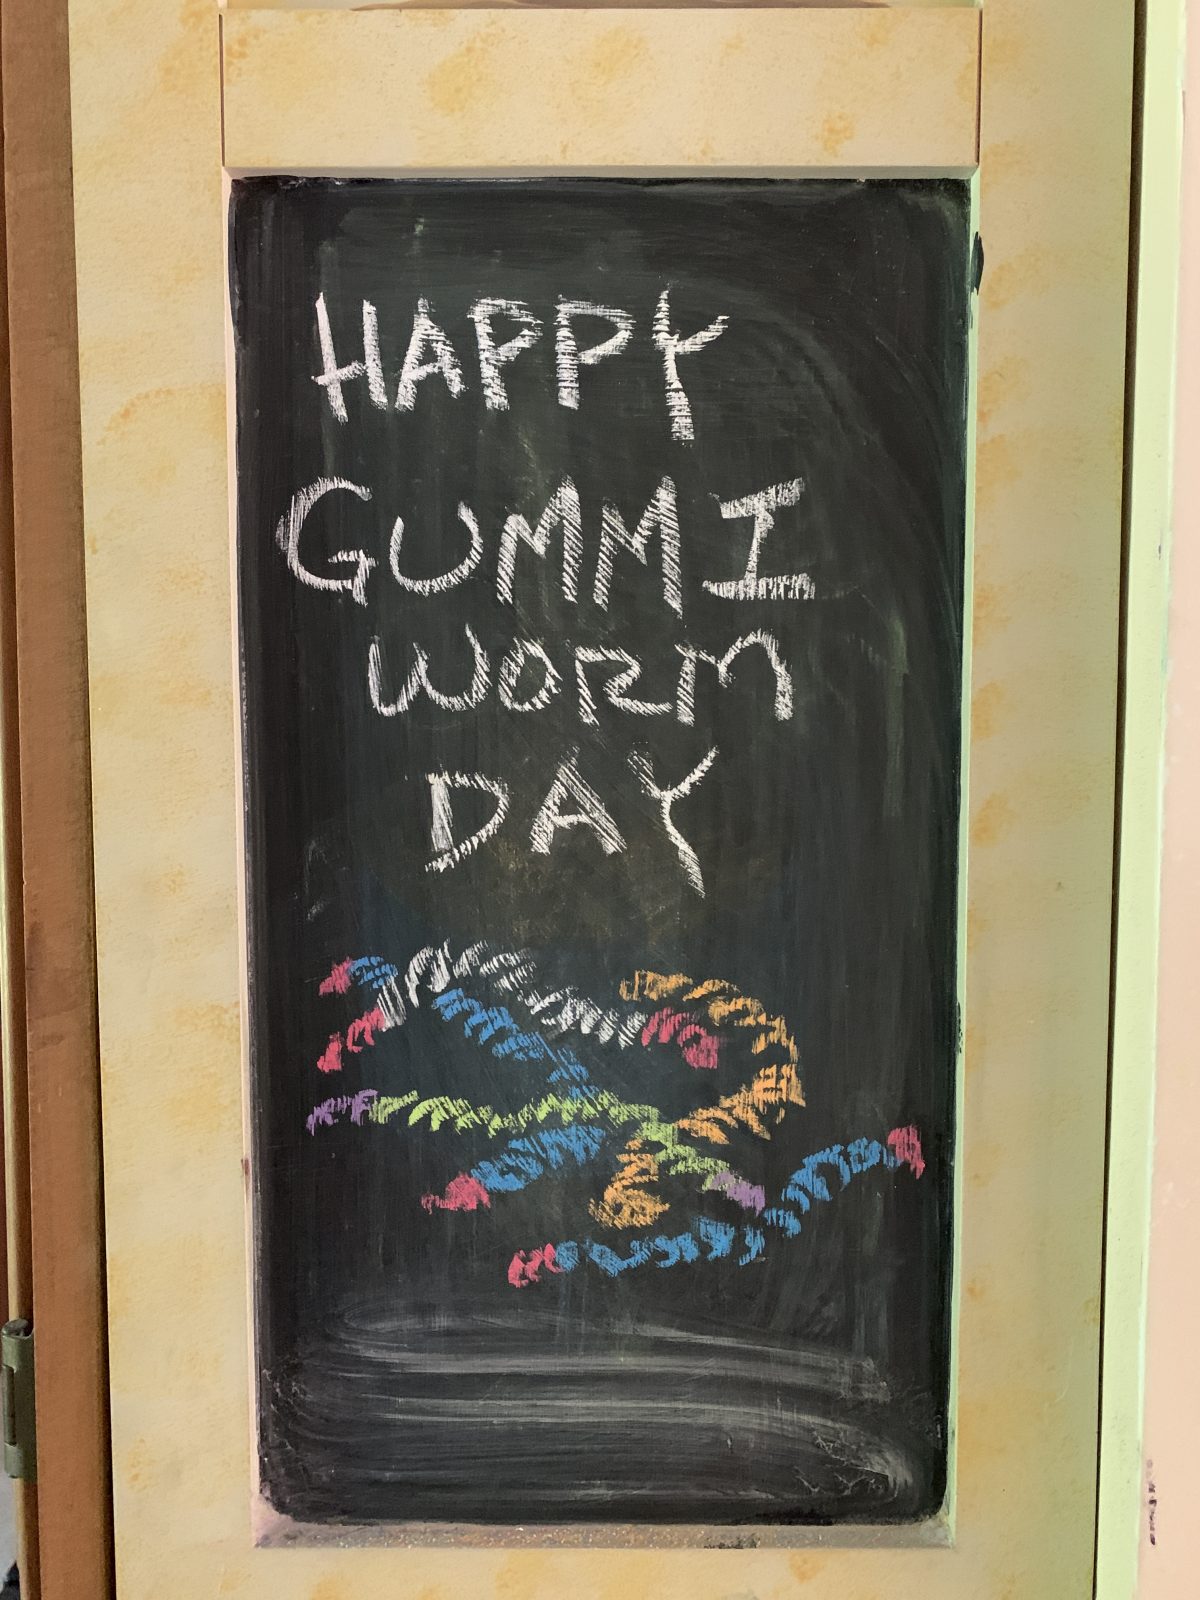 HAPPY
GUMMI
WORM
DAY